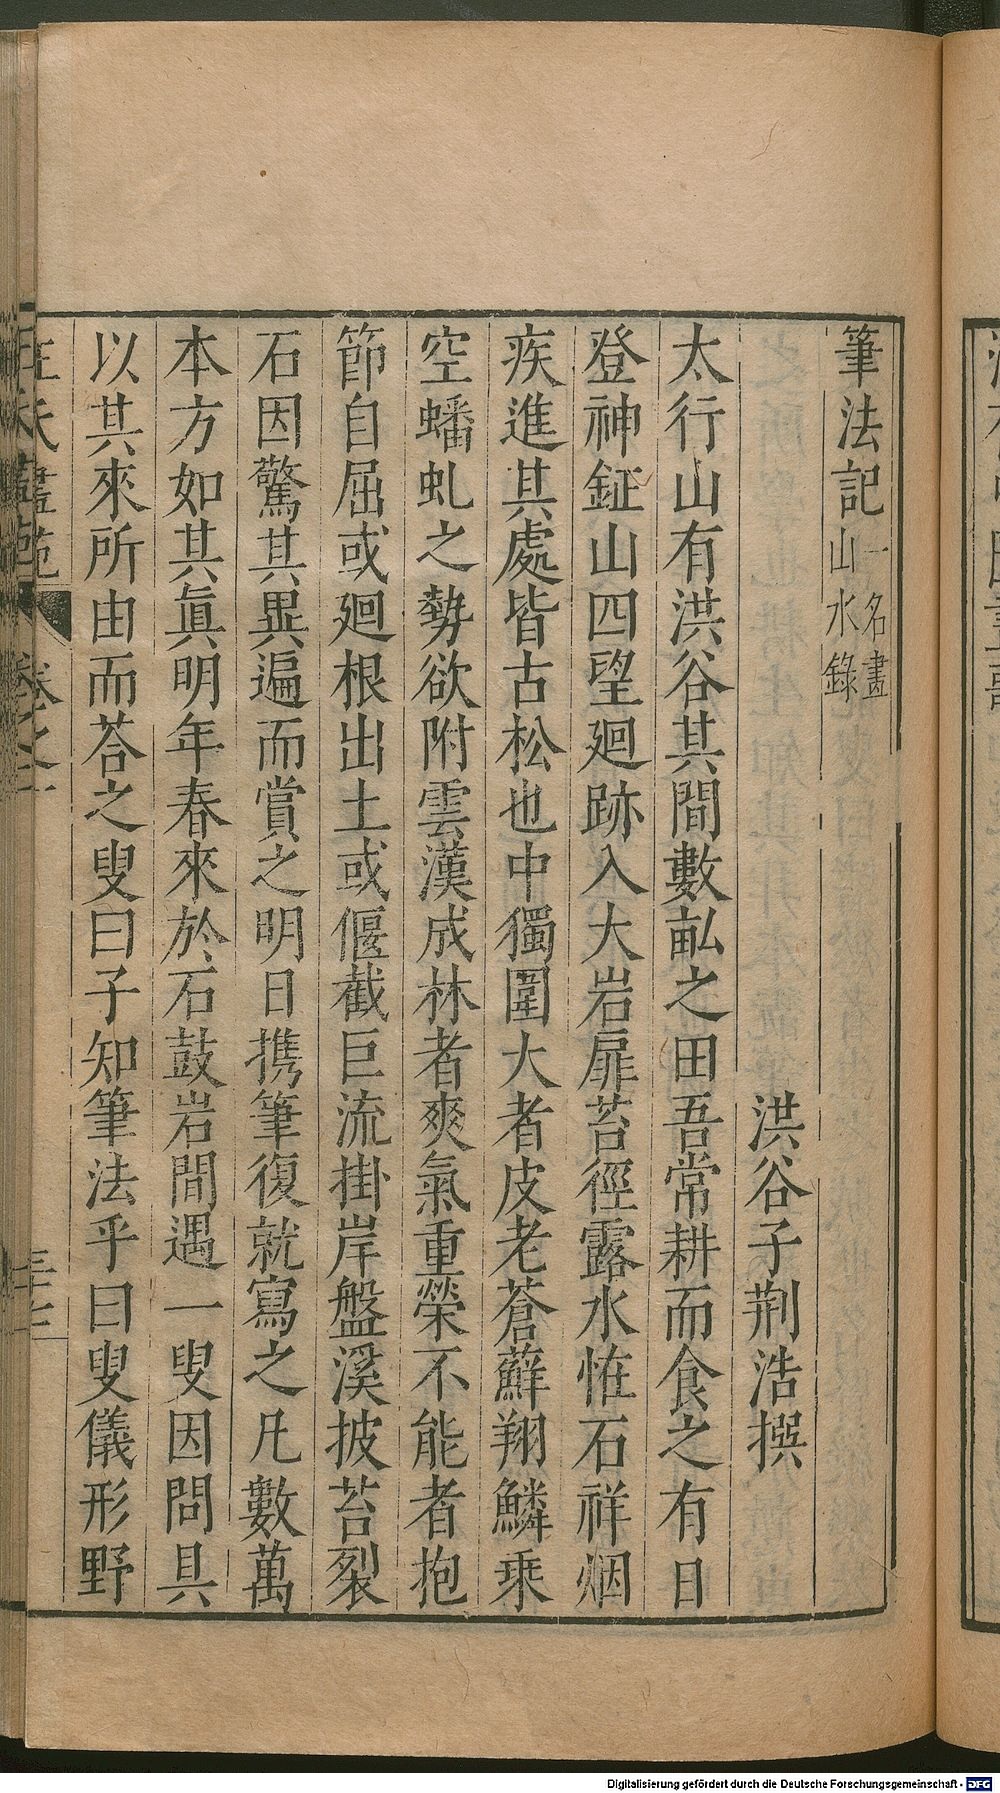 筆法記 一名畫山水錄
洪谷子荆浩撰
太行山有洪谷其間數畝之田吾常耕而食之有日
登神鉦山四望廻跡入大岩扉苔徑露水恠石祥烟
疾進其處皆古松也中獨圍大者皮老蒼蘚翔鱗乘
空蟠虬之勢欲附雲漢成林者爽氣重榮不能者抱
節自屈或廻根出土或偃截巨流掛岸盤溪披苔裂
石因驚其異遍而賞之明日携筆復就寫之凡數萬
本方如其眞明年春來於石鼓岩間遇一叟因問具
以其來所由而荅之叟曰子知筆法乎曰叟儀形野
王氏畫苑 卷之
Digitalisierung gefördert durch die Deutsche Forschungsgemeinschaft - DFG